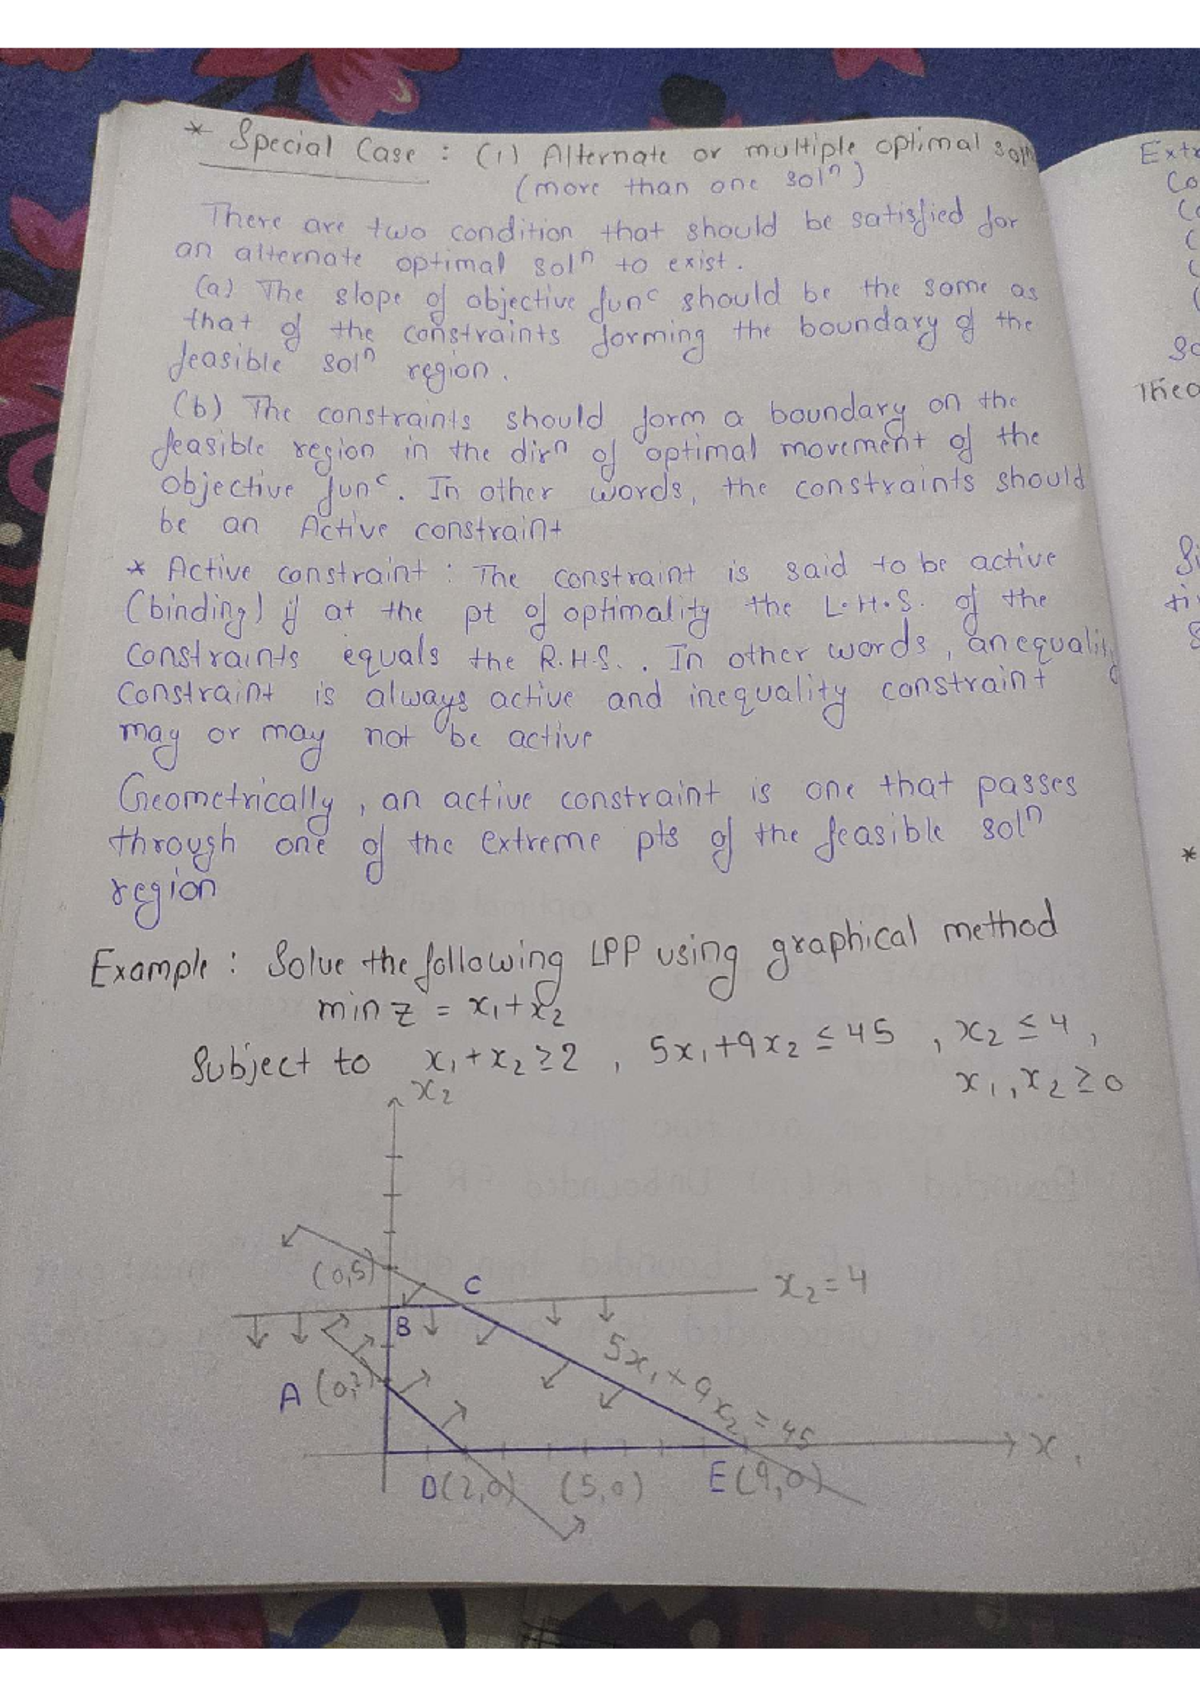 * Special Case : (1) Alternate or multiple optimal soln
(more than one solⁿ)
There are two condition that should be satisfied for
an alternate optimal solⁿ to exist.
(a) The slope of objective funᶜ should be the same as
that of the constraints forming the boundary of the
feasible solⁿ region.
(b) The constraints should form a boundary on the
feasible region in the dirⁿ of optimal movement of the
objective funᶜ. In other words, the constraints should
be an Active constraint
* Active constraint : The constraint is said to be active
(binding) if at the pt of optimality the L.H.S. of the
constraints equals the R.H.S.. In other words, an equality
constraint is always active and inequality constraint
may or may not be active
Geometrically, an active constraint is one that passes
through one of the extreme pts of the feasible solⁿ
region
Example : Solve the following LPP using graphical method
min z = x₁+x₂
Subject to x₁+x₂≥2 , 5x₁+9x₂≤45 , x₂≤4 ,
x₁,x₂≥0
x₂
(0,5)
C
x₂=4
B
5x₁+9x₂=45
A (0,2)
x₁
D(2,0) (5,0) E(9,0)
Extr
Co
*